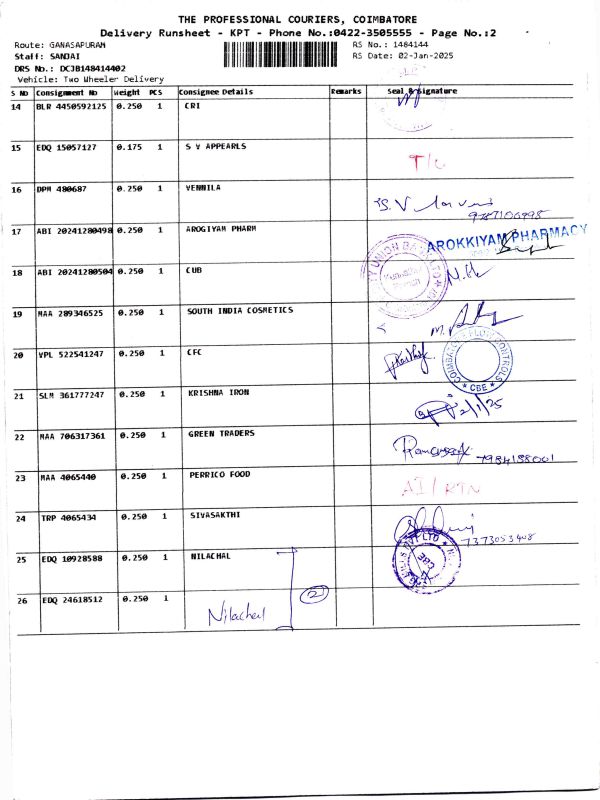 THE PROFESSIONAL COURIERS, COIMBATORE
Delivery Runsheet - KPT - Phone No.:0422-3505555 - Page No.:2
Route: GANASAPURAM RS No.: 1484144
Staff: SANJAI RS Date: 02-Jan-2025
DRS No.: DCJB148414402
Vehicle: Two Wheeler Delivery
S No Consignment No Weight PCS Consignee Details Remarks Seal & Signature
14 BLR 4450592125 0.250 1 CRI
15 EDQ 15057127 0.175 1 S V APPEARLS
16 DPM 480687 0.250 1 VENNILA
17 ABI 20241280498 0.250 1 AROGIYAM PHARM AROKKIYAM PHARMACY
18 ABI 20241280504 0.250 1 CUB
19 MAA 289346525 0.250 1 SOUTH INDIA COSMETICS
20 VPL 522541247 0.250 1 CFC CBE
21 SLM 361777247 0.250 1 KRISHNA IRON 2/1/25
22 MAA 706317361 0.250 1 GREEN TRADERS
23 MAA 4065440 0.250 1 PERRICO FOOD
24 TRP 4065434 0.250 1 SIVASAKTHI 7373053408
25 EDQ 10928588 0.250 1 NILACHAL
26 EDQ 24618512 0.250 1 Nilachal 2